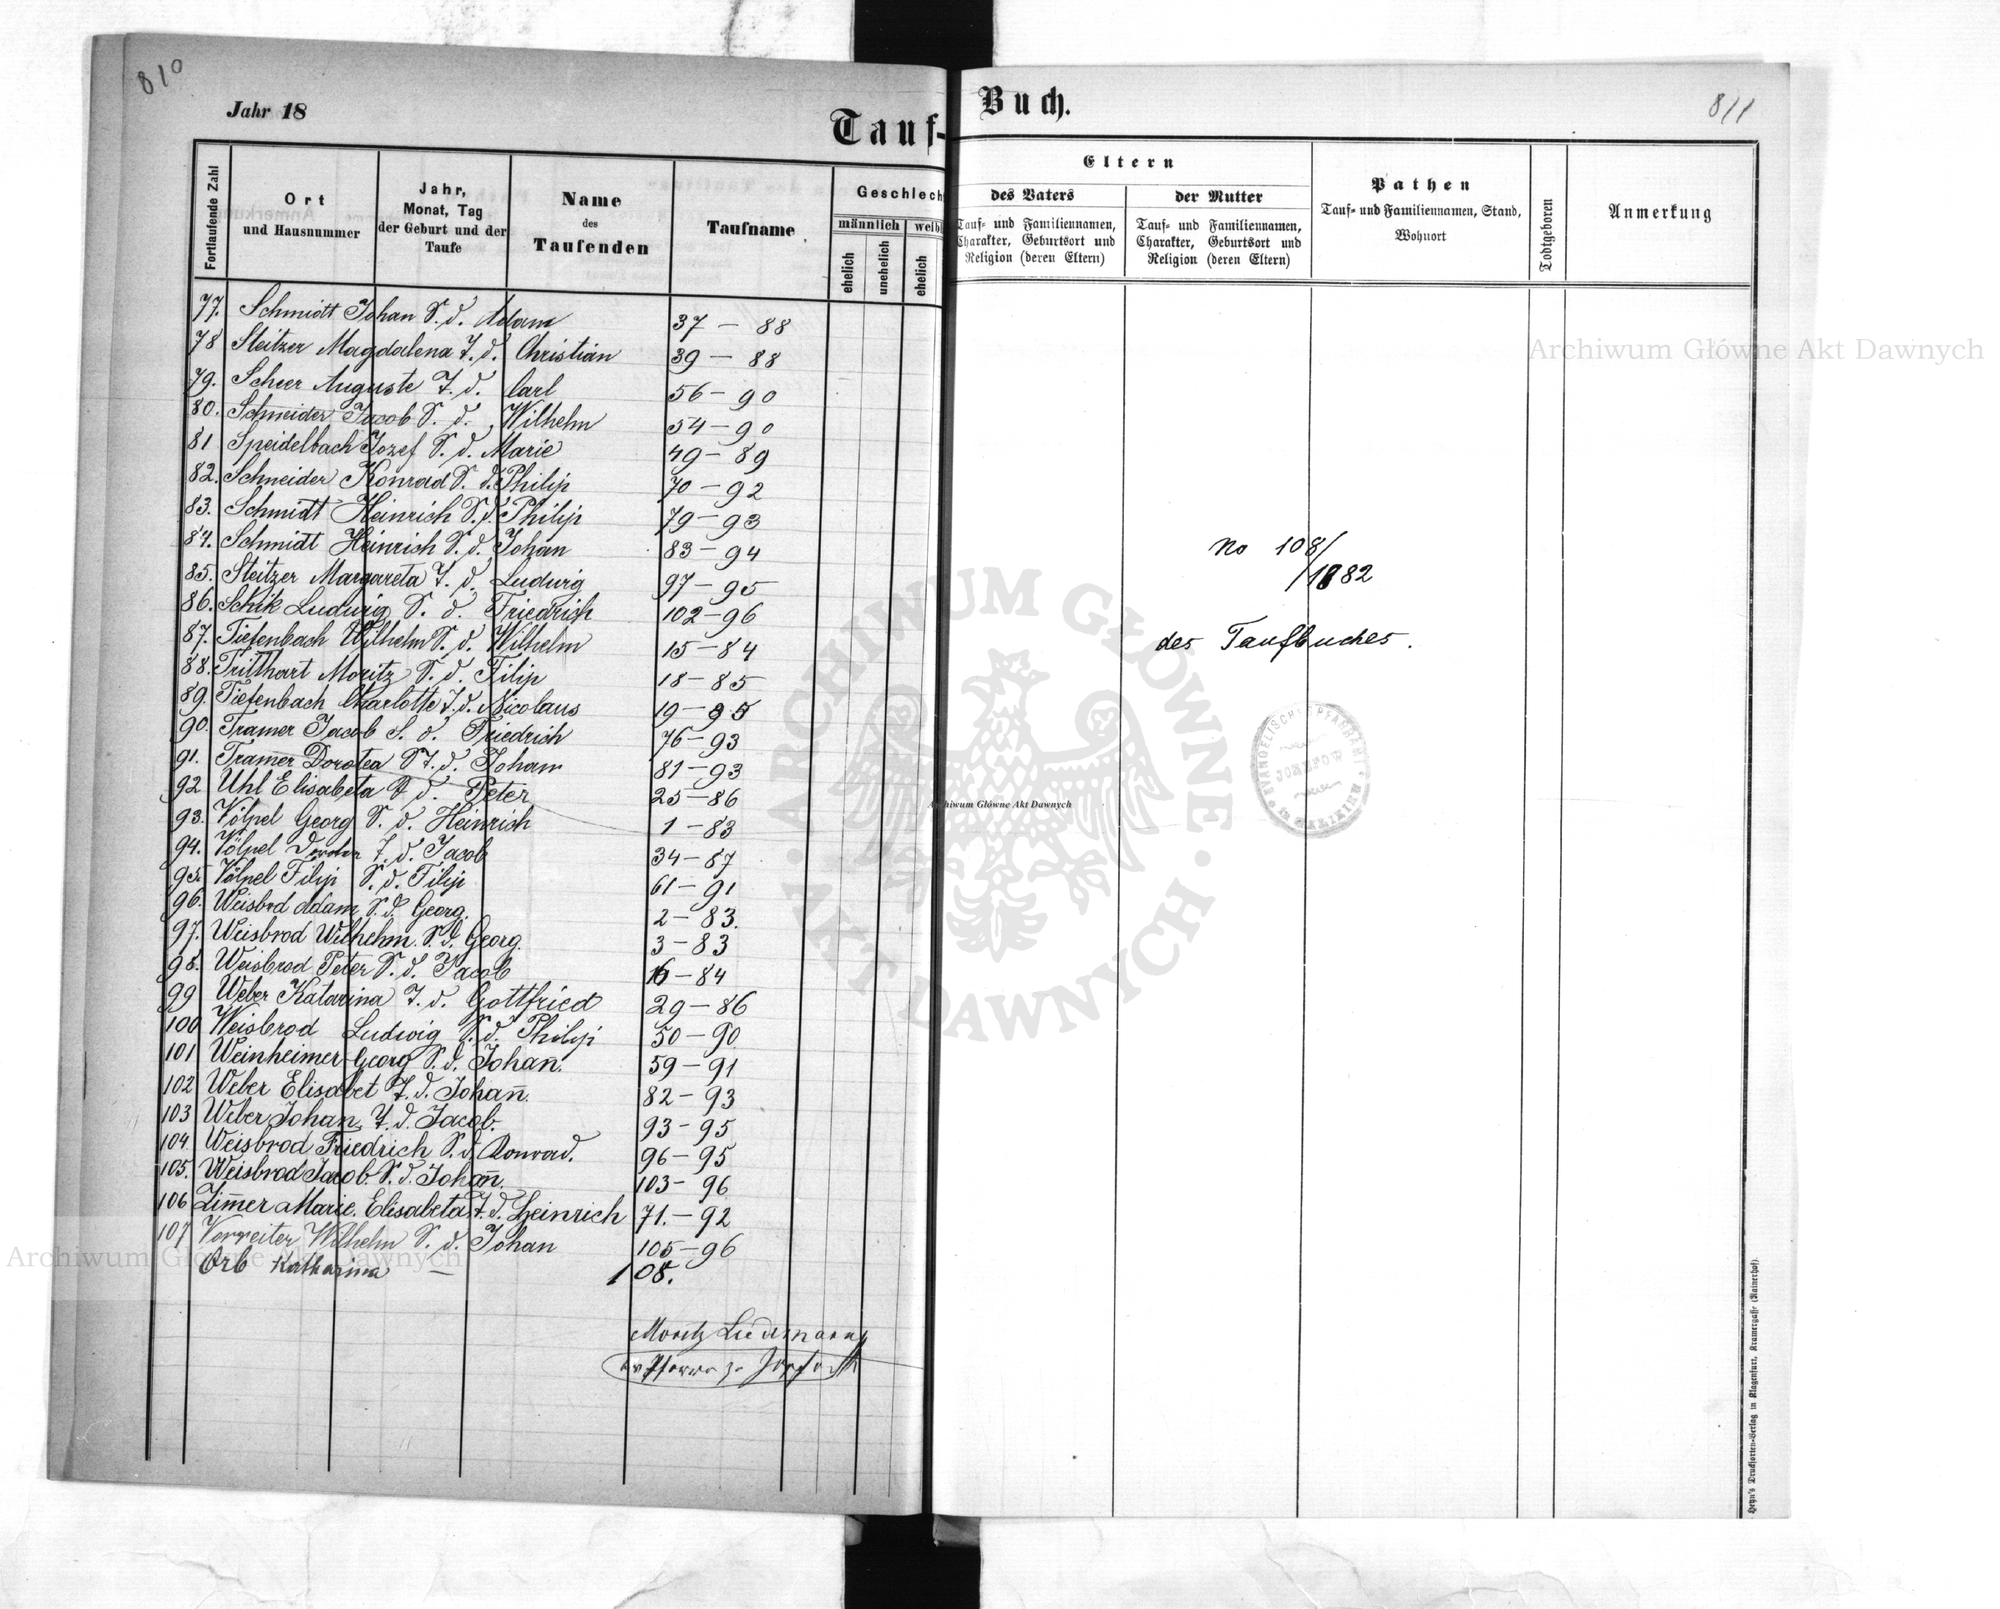 810
Jahr 18
Tauf-
Fortlaufende Zahl
Ort
und Hausnummer
Jahr,
Monat, Tag
der Geburt und der
Taufe
Name
des
Taufenden
Taufname
Geschlech
männlich
weibl
ehelich
unehelich
ehelich
77. Schmidt Johan S. d. Adam 37 - 88
78 Steitzer Magdalena T. d. Christian 39 - 88
79. Scheer Auguste T. d. Carl 56 - 90
80. Schneider Jacob S. d. Wilhelm 54 - 90
81 Speidelbach Jozef S. d. Marie 49 - 89
82. Schneider Konrad S. d. Philip 70 - 92
83. Schmidt Heinrich S. d. Philip 79 - 93
84. Schmidt Heinrich S. d. Johan 83 - 94
85. Steitzer Margareta T. d. Ludwig 97 - 95
86. Schik Ludwig S. d. Friedrich 102 - 96
87. Tiefenbach Wilhelm S. d. Wilhelm 15 - 84
88. Tritthart Moritz S. d. Filip 18 - 85
89. Tiefenbach Charlotte T. d. Nicolaus 19 -
90. Tramer Jacob S. d. Friedrich 76 - 93
91. Tramer Dorotea T. d. Johan 81 - 93
92 Uhl Elisabeta d. Peter 25 - 86
93. Völpel Georg S. d. Heinrich 1 - 83
94. Völpel T. d. Jacob 34 - 87
95. Völpel Filip S. d. Filip 61 - 91
96. Weisbrod Adam S. d. Georg. 2 - 83.
97. Weisbrod Wilhelm. S. d. Georg. 3 - 83
98. Weisbrod Peter S. d. Jacob - 84
99 Weber Katarina T. d. Gottfried 29 - 86
100 Weisbrod Ludwig S. d. Philip 50 - 90
101 Weinheimer Georg S. d. Johan̄. 59 - 91
102 Weber Elisabet T. d. Johan̄. 82 - 93
103 Weber Johan T. d. Jacob. 93 - 95
104. Weisbrod Friedrich S. d. Konrad. 96 - 95
105. Weisbrod Jacob. S. d. Johan̄. 103 - 96
106 Zim̄er Marie. Elisabeta T. d. Heinrich 71. - 92
107 Vorreiter Wilhelm S. d. Johan 105 - 96
Orb Katharina — 108.
Moritz
Buch.
811
Eltern
des Vaters
Tauf- und Familiennamen,
Charakter, Geburtsort und
Religion (deren Eltern)
der Mutter
Tauf- und Familiennamen,
Charakter, Geburtsort und
Religion (deren Eltern)
Pathen
Tauf- und Familiennamen, Stand,
Wohnort
Todtgeboren
Anmerkung
No 108/
/1882
des Taufbuches.
EVANGELISCHES PFARRAMT
JOSEFOW
in GALIZIEN
Heyn's Drucksorten-Verlag in Klagenfurt, Kramergasse (Rainerhof).
Archiwum Główne Akt Dawnych
ARCHIWUM GŁÓWNE · AKT DAWNYCH ·
Archiwum Główne Akt Dawnych
Archiwum Główne Akt Dawnych